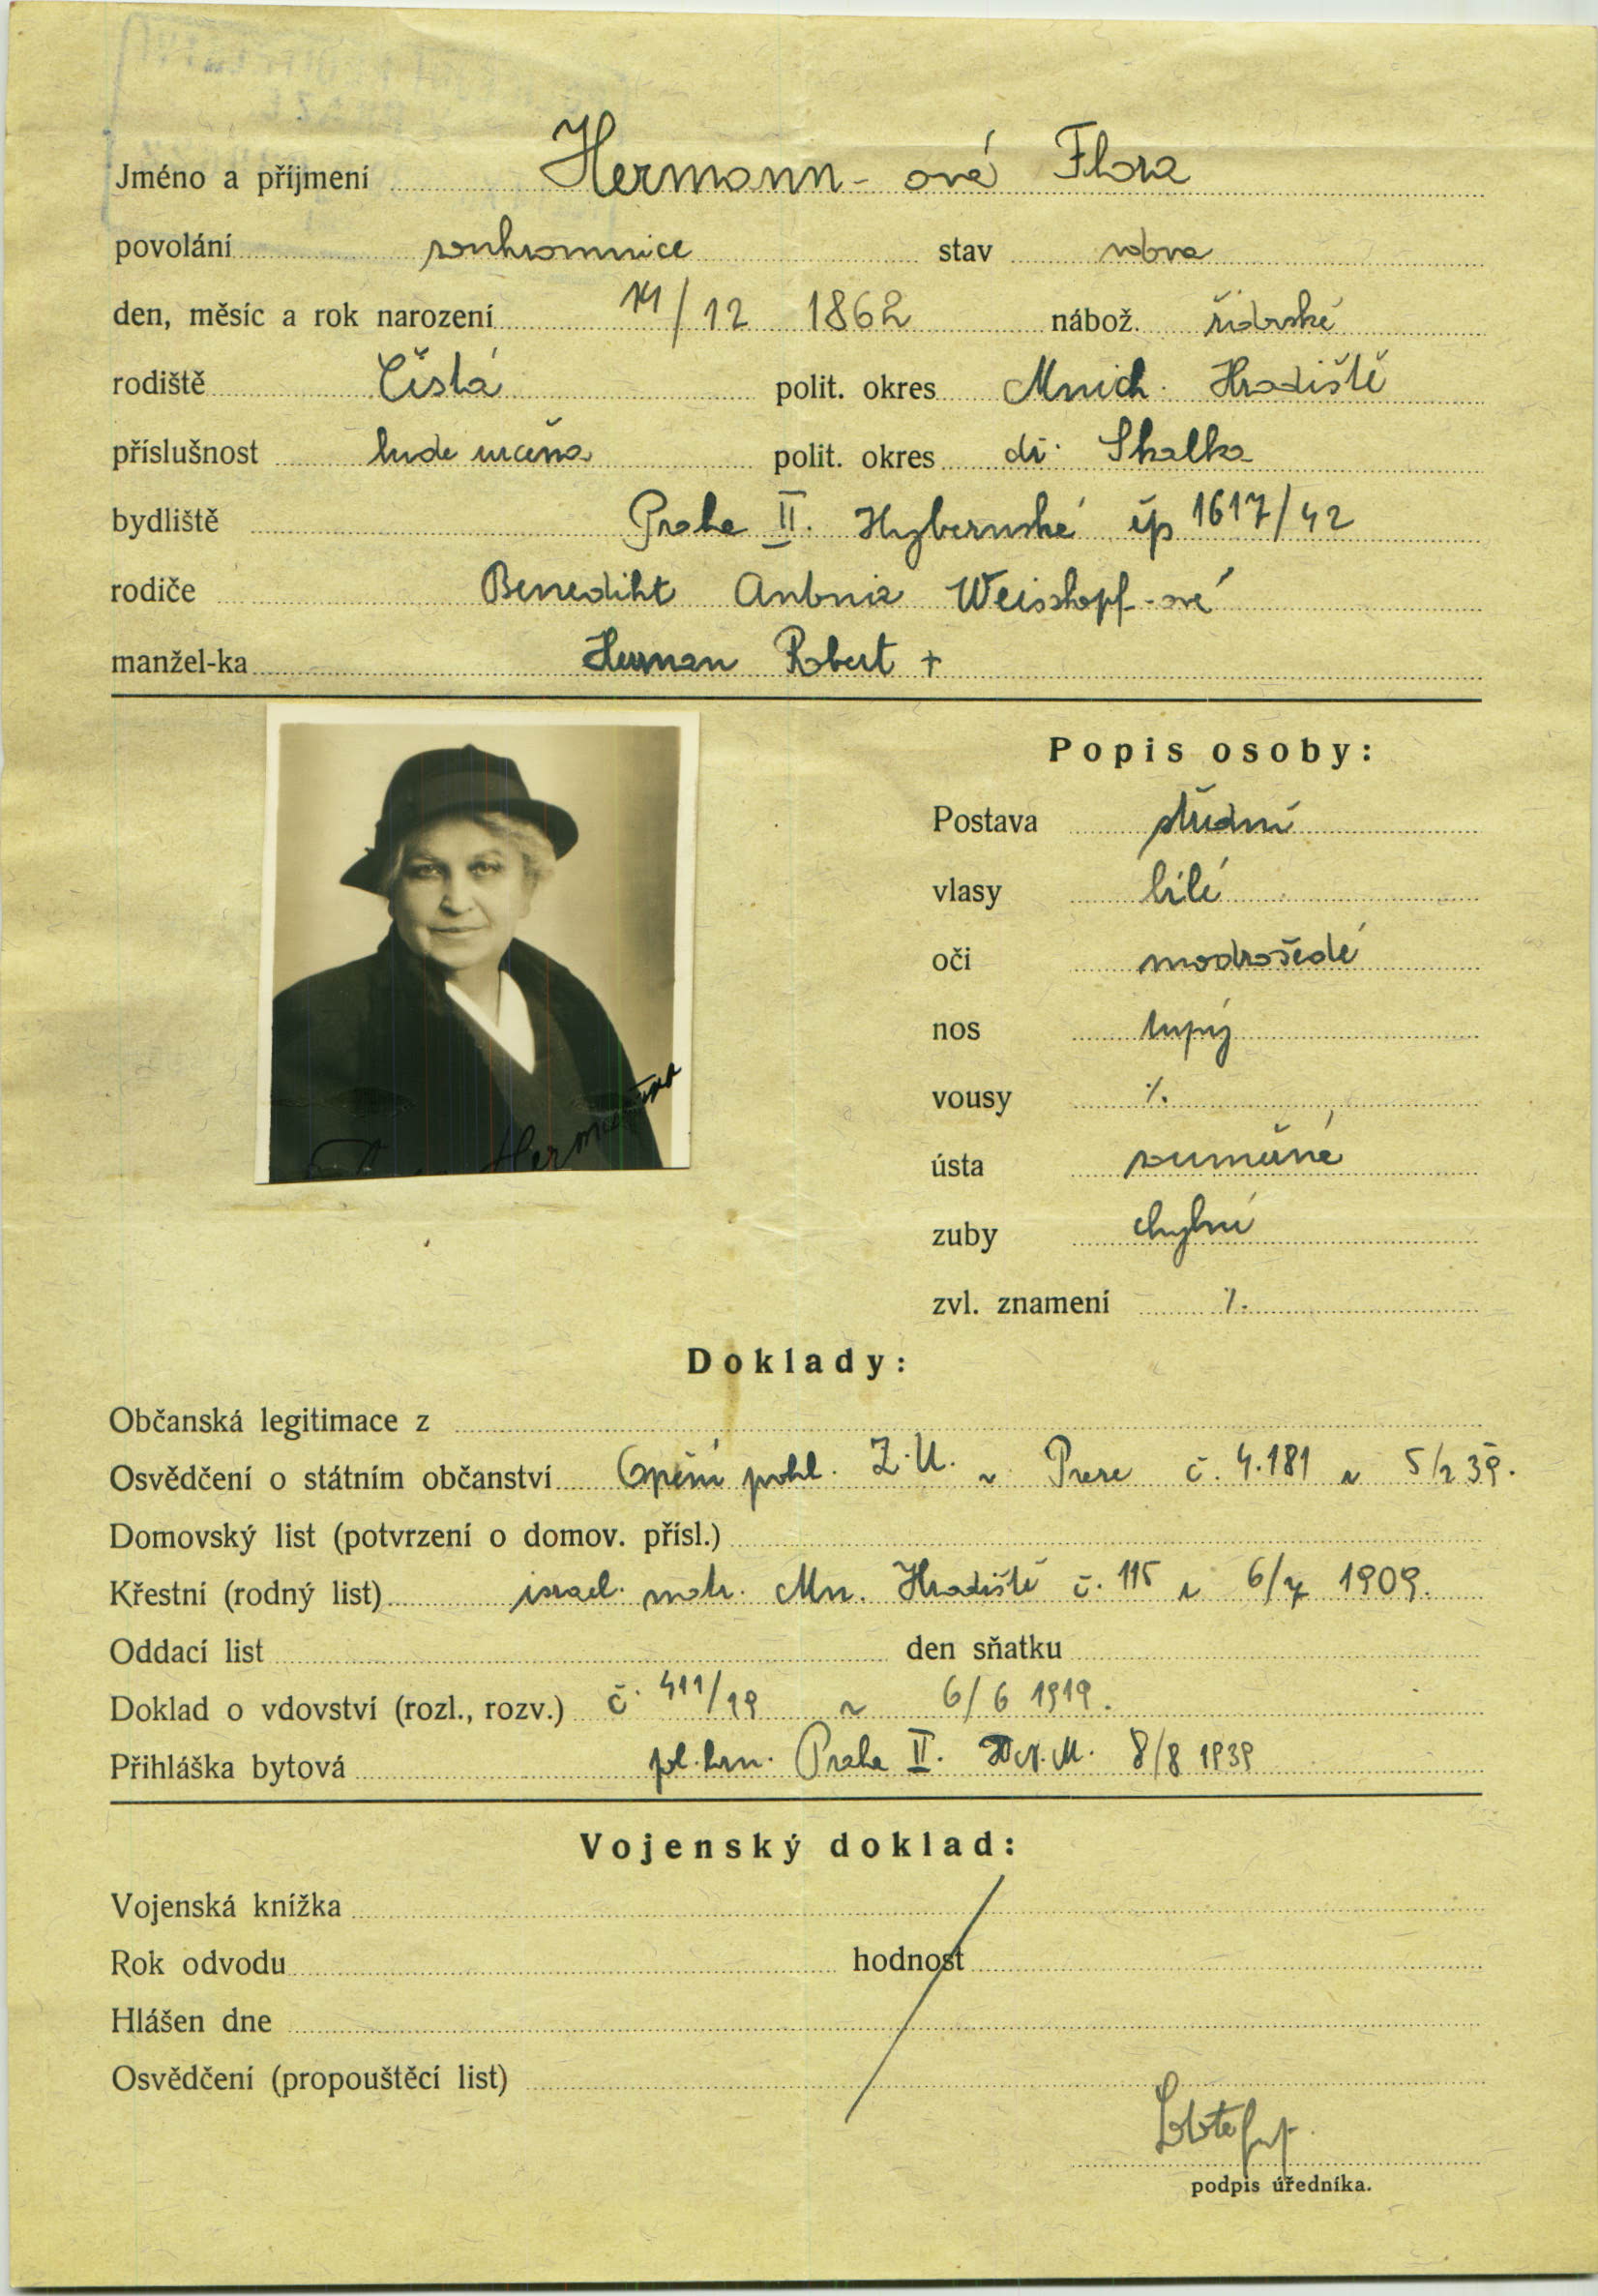 Jméno a příjmení Hermann-ová Flora
povolání soukromnice stav vdova
den, měsíc a rok narození 14/12 1862 nábož. židovské
rodiště Čistá polit. okres Mnich. Hradiště
příslušnost bude určena polit. okres dř. Skalka
bydliště Praha II. Hybernská čp 1617/42
rodiče Benedikt Antonia Weisskopf-ové
manžel-ka Herman Robert +
Popis osoby:
Postava střední
vlasy bílé
oči modrošedé
nos tupý
vousy ٪.
ústa souměrné
zuby chybné
zvl. znamení ٪.
Hermannová
Doklady:
Občanská legitimace z
Osvědčení o státním občanství pohl. Z.U. v Praze č. 4.181 z 5/2 39.
Domovský list (potvrzení o domov. přísl.)
Křestní (rodný list) israel. matr. Mn. Hradiště č. 115 z 6/7 1909.
Oddací list den sňatku
Doklad o vdovství (rozl., rozv.) č. 411/19 z 6/6 1919.
Přihláška bytová pol. kom. Praha II. 8/8 1939
Vojenský doklad:
Vojenská knížka
Rok odvodu hodnost
Hlášen dne
Osvědčení (propouštěcí list)
podpis úředníka.